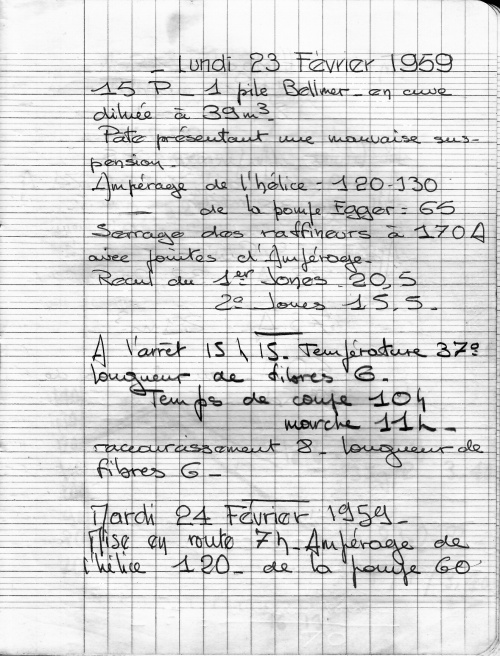 _ Lundi 23 Février 1959
15 P _ 1 pile Bellmer _ en cuve
diluée à 39 m³_
Pate présentant une mauvaise sus-
pension _
Ampérage de l'hélice = 120-130
— de la pompe Egger = 65
Serrage des raffineurs à 170 A
avec pointes d'Ampérage _
Recul du 1er Jones 20,5
2e Jones 15,5 _
A l'arrêt 15 h 15 _ Température 37°
longueur de fibres 6 _
Temps de coupe 10 h
marche 11 h _
raccourcissement 8 _ longueur de
fibres 6 _
Mardi 24 Février 1959 _
Mise en route 7 h _ Ampérage de
l'hélice 120 _ de la pompe 60